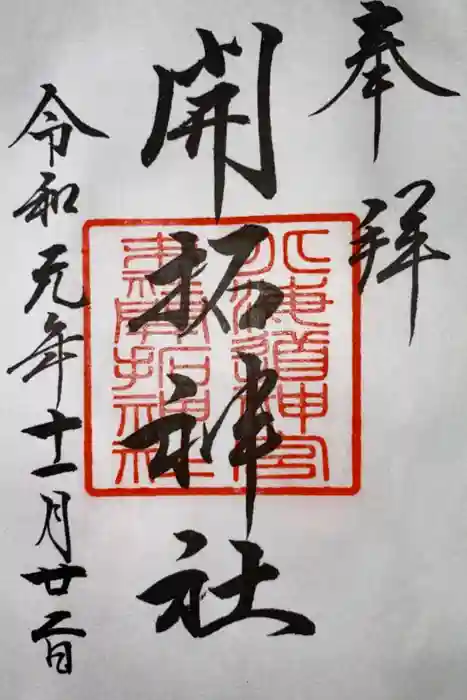 奉拝
開拓神社
令和元年十一月廿二日
北海道神宮
開拓神社